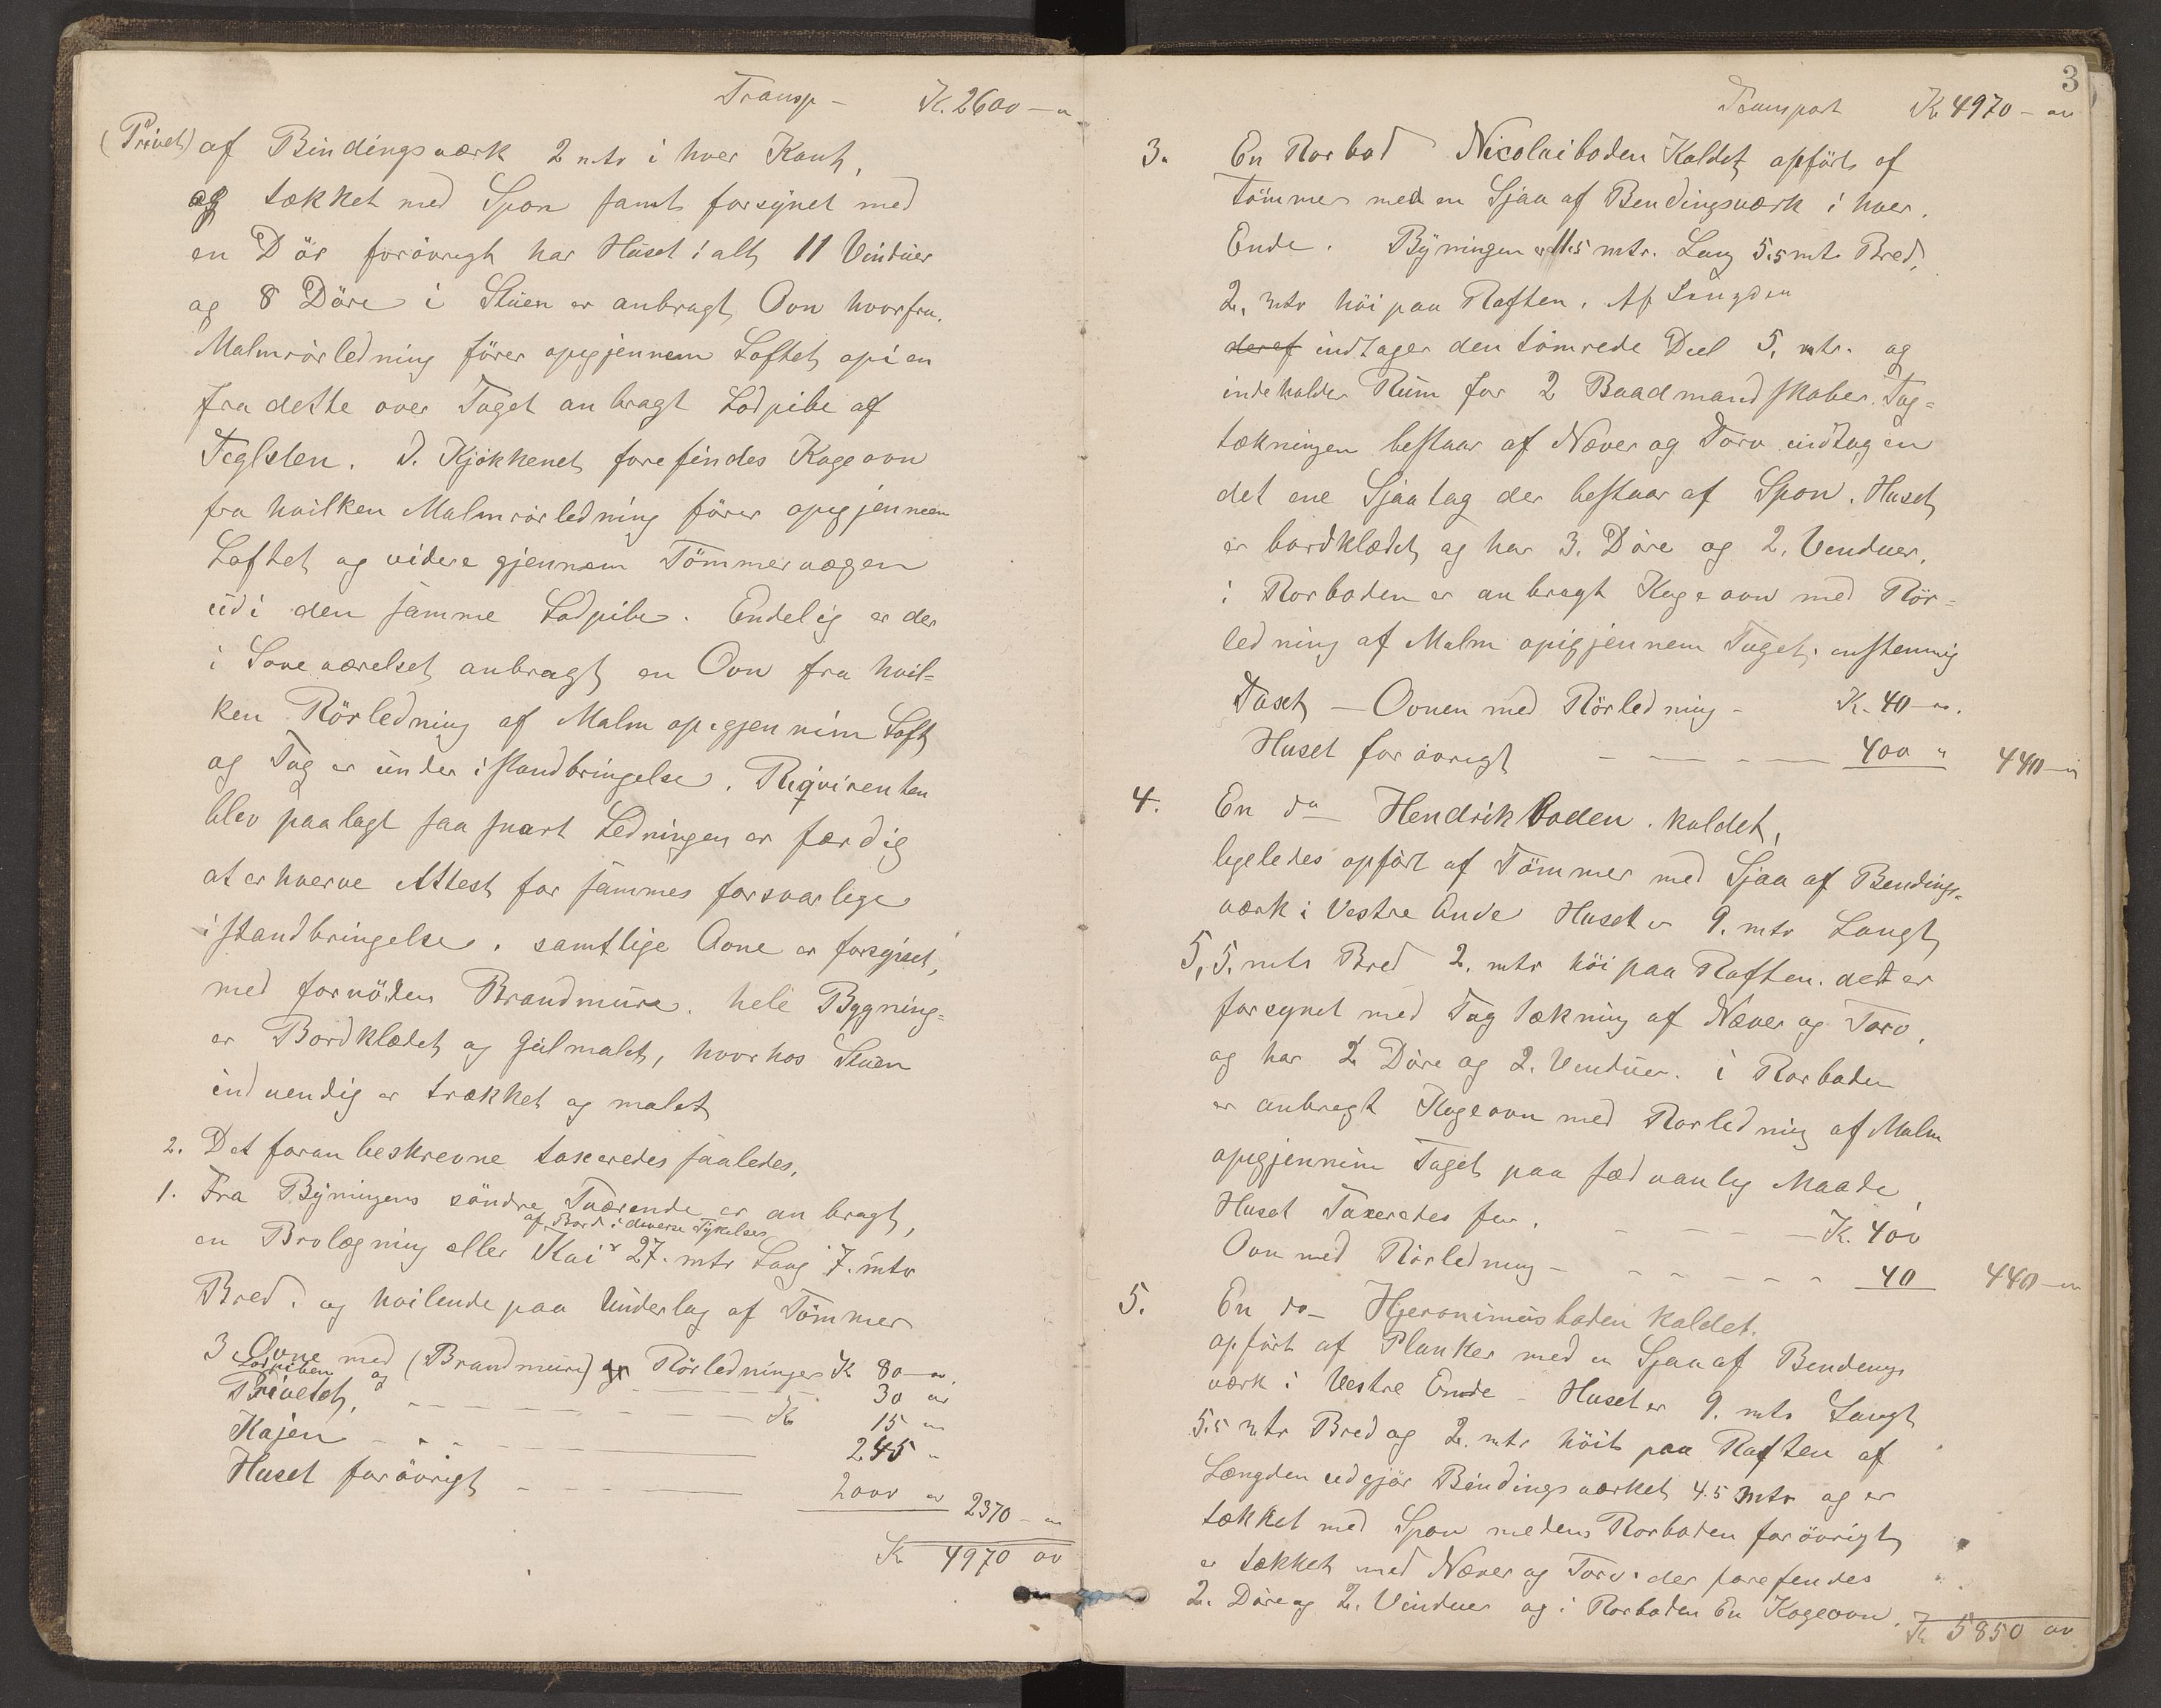 Transp - K. 2600 -"
(Privet) af Bindingsværk 2 mtr i hver Kant,
og tækket med Spon samt forsynet med
en Dör forövrigt har Huset i alt 11 Vinduer
og 8 Döre i Stuen er anbragt Ovn hvorfra
Malmrörledning förer opigjennem Loftet op i en
fra dette over Taget anbragt Lodpibe af
Teglsten. I Kjökkenet forefindes Kogeovn
fra hvilken Malmrörledning förer opigjennem
Loftet og videre gjennem Tömmervægen
ud i den samme Lodpibe. Endelig er der
i Soveværelset anbragt en Ovn fra hvil=
ken Rörledning af Malm opigjennim Loft
og Tag er under istandbringelse. Reqvirenten
blev paalagt saa snart Ledningen er færdig
at erhverve Attest for sammes forsvarlige
istandbringelse. samtlige Ovne er forsynet,
med fornöden Brandmure. hele Bygning=
er Bordklædet og Gulmalet, hvorhos Stuen
indvendig er trækket og malet
2. Det foran beskrevne taxeredes saaledes,
1. Fra Bÿningens söndre Tværende er anbragt,
af Bord i diverse Tykelser
en Brolægning eller Kai 27. mtr Lang 7. mtr
Bred. og hvilende paa Underlag af Tömmer
3 Ovne med (Brandmure) og Rörledninger K 80 -"
Lodpiben og - - - 30 "
Privetet, - - - K 15 "
Kajen - - - 245 "
Huset forövrigt - - - 2000 " 2370 - "
K 4970 00
3
Transport K 4970 - "
3. En Rorbod Nicolaiboden Kaldet opfört af
Tömmer med en Sjaa af Bendingsværk i hver
Ende. Bÿningen er 11.5 mtr. Lang 5.5 mtr Bred,
2. mtr höi paa Raften. Af Længden
deraf indtager den tömrede Deel 5, mtr. og
indeholder Rum for 2 Baadmandskaber. Tag=
tækningen bestaar af Næver og Torv undtagen
det ene Sjaatag der bestaar af Spon. Huset
er bordklædet og har 3. Döre og 2. Venduer,
i Rorboden er anbragt Kogeovn med Rör=
ledning af Malm opigjennem Taget. enstemmig
Taxet — Ovnen med Rörledning - K. 40 -".
Huset forövrigt - - - 400 " 440 -"
4. En do Hendrikboden. kaldet,
ligeledes opfört af Tömmer med Sjaa af Bendings=
værk i Vestre Ende Huset er 9. mtr Langt,
5,5. mtr Bred 2. mtr höi paa Raften. det er
forsynet med Tagtækning af Næver og Torv,
og har 2 Döre og 2. Venduer. i Rorboden
er anbragt Kogeovn med Rorledning af Malm
opigjennim Taget paa sædvanlig Maade,
Huset Taxeredes for. - - - K. 400
Ovn med Rörledning - - - 40 440 - "
5. En do - Hjeronimusboden kaldet.
opfört af Planker med en Sjaa af Bendings
værk i Vestre Ende - Huset er 9. mtr Langt
5.5 mtr Bred og 2. mtr höit paa Raften af
Længden udgjör Bindingsværket 4.5 mtr og er
tækket med Spon medens Rorboden forövrigt
er tækket med Næver og Torv. der forefendes
2. Döre og 2. Vinduer og i Rorboden En Kogeovn.
K 5850 00